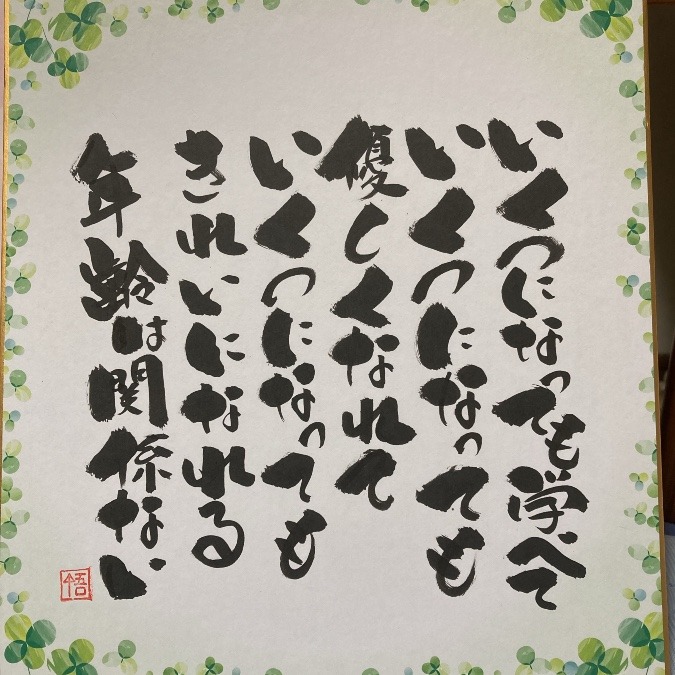 いくつになっても学べて
いくつになっても
優しくなれて
いくつになっても
きれいになれる
年齢は関係ない
悟